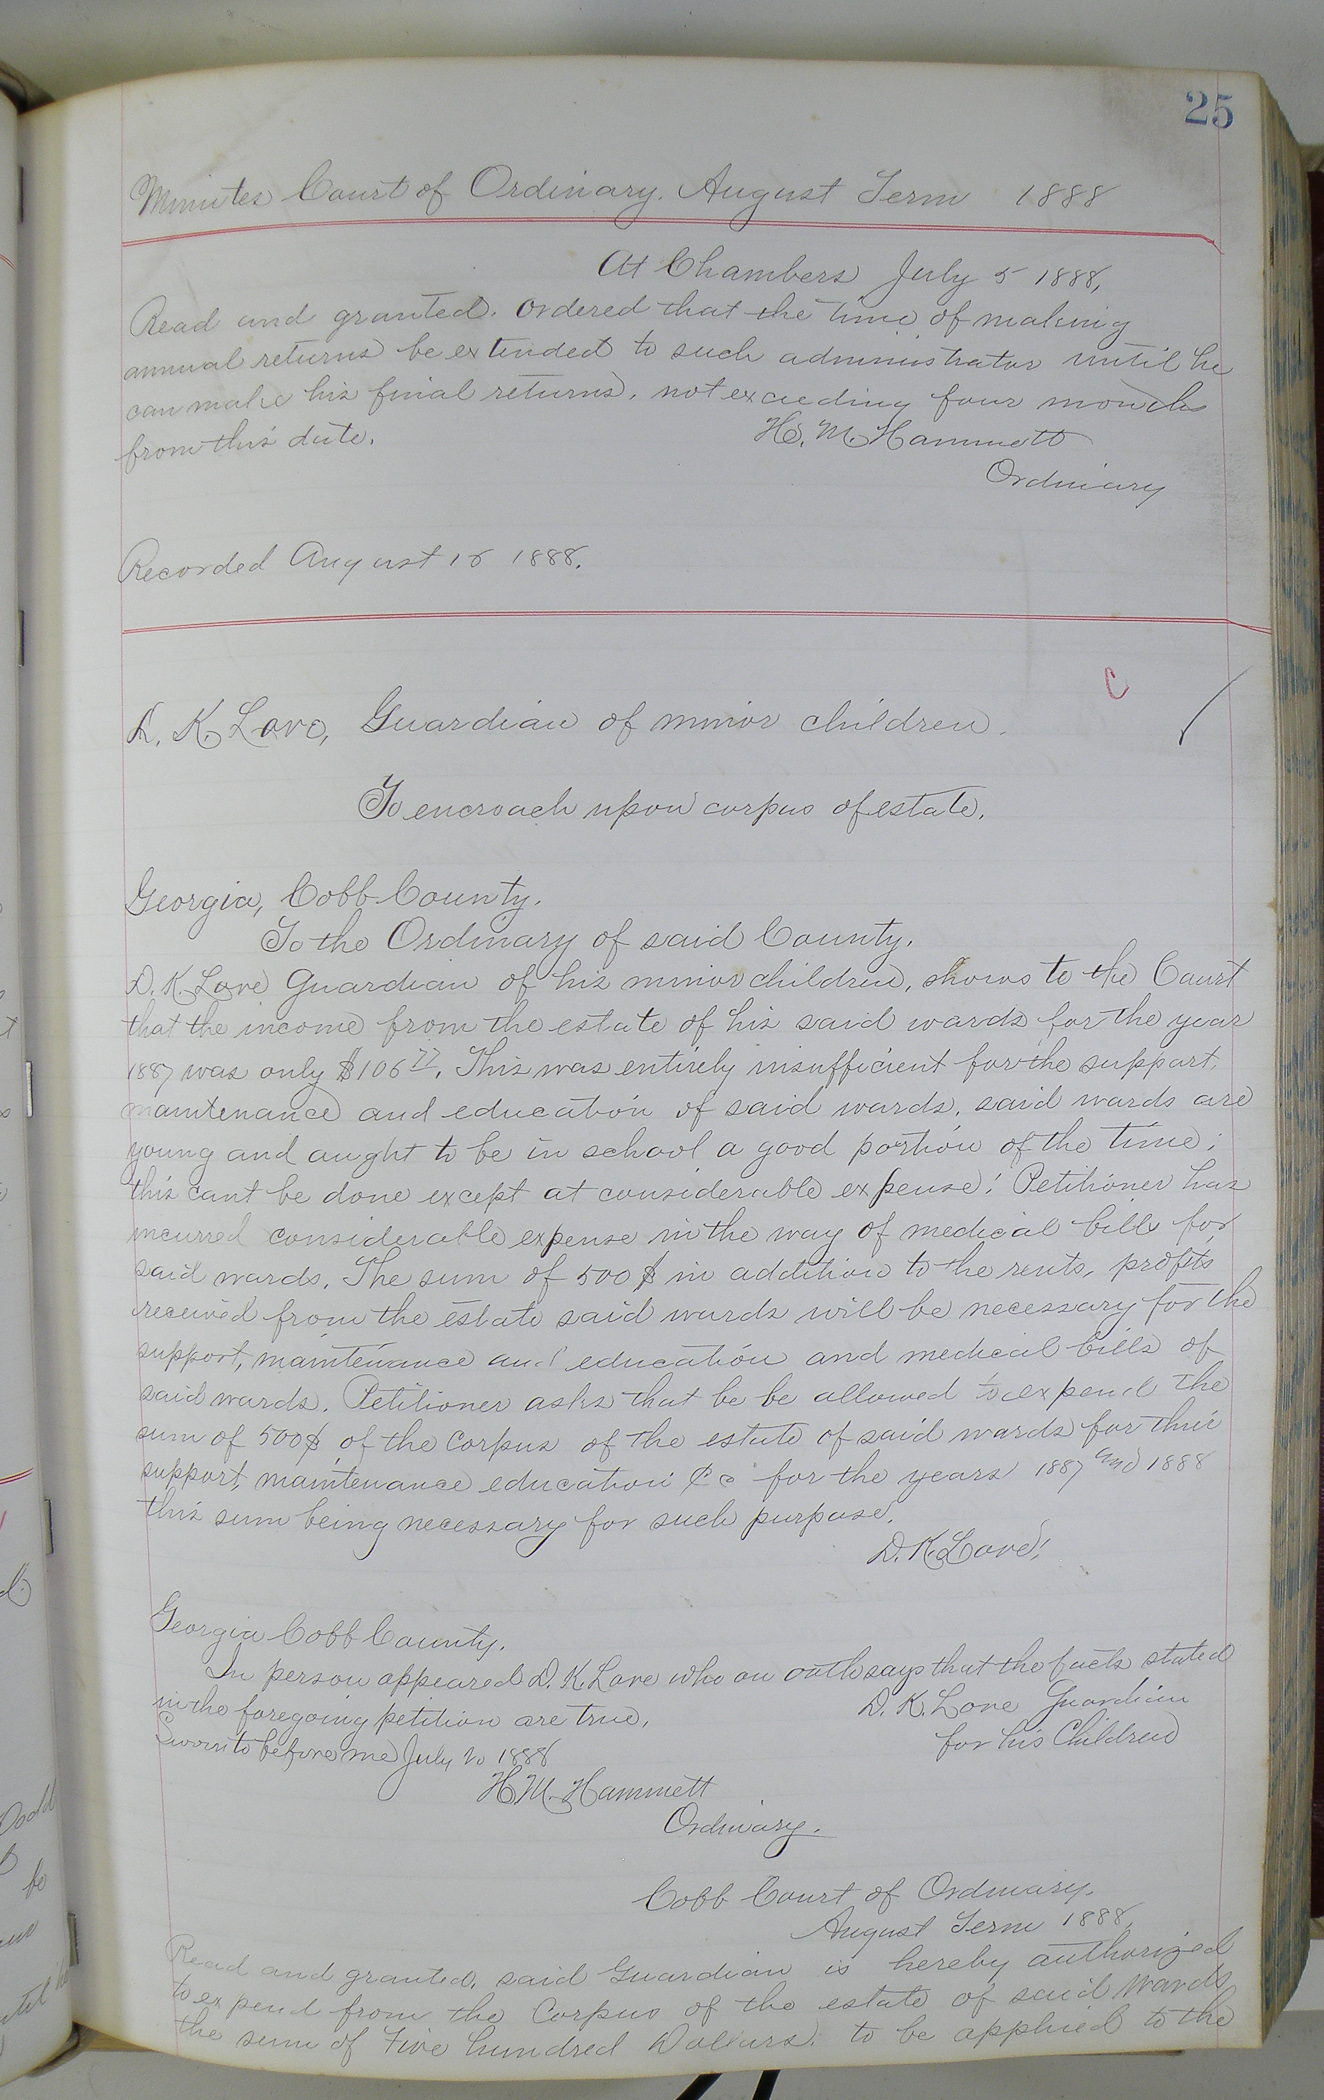 25
Minutes Court of Ordinary. August Term 1888
At Chambers July 5 1888,
Read and granted. Ordered that the time of making
annual returns be extended to such administrator until he
can make his final returns, not exceeding four months
from this date.
H. M. Hammett
Ordinary
Recorded August 18 1888.
C
D. K. Love, Guardian of minor children.
To encroach upon corpus of estate.
Georgia, Cobb County.
To the Ordinary of said County.
D. K. Love Guardian of his minor children, shows to the Court
that the income from the estate of his said wards for the year
1887 was only $106 77. This was entirely insufficient for the support,
maintenance and education of said wards, said wards are
young and aught to be in school a good portion of the time;
this cant be done except at considerable expense! Petitioner has
incurred considerable expense in the way of medical bills for
said wards. The sum of 500$ in addition to the rents, profits
received from the estate said wards will be necessary for the
support, maintenance and education and medical bills of
said wards. Petitioner asks that be be allowed to expend the
sum of 500$ of the corpus of the estate of said wards for their
support, maintenance education &c for the years 1887 and 1888
this sum being necessary for such purpose.
D. K. Love!
Georgia Cobb County.
In person appeared D. K. Love who on oath says that the facts stated
in the foregoing petition are true.
D. K. Love Guardian
for his Children
Sworn to before me July 1888
H. M. Hammett
Ordinary.
Cobb Court of Ordinary.
August Term 1888,
Read and granted, said Guardian is hereby authorized
to expend from the Corpus of the estate of said wards
the sum of Five hundred Dollars. to be applied to the